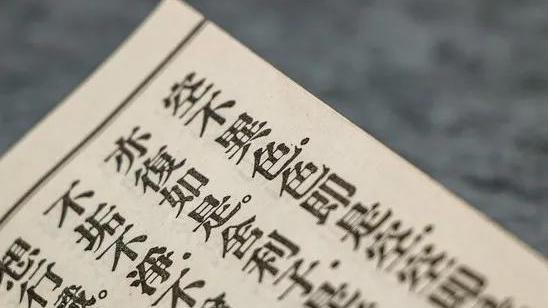 空不異色。色即是空。空即
亦復如是。舍利子。是
不垢不淨。不
想行識。